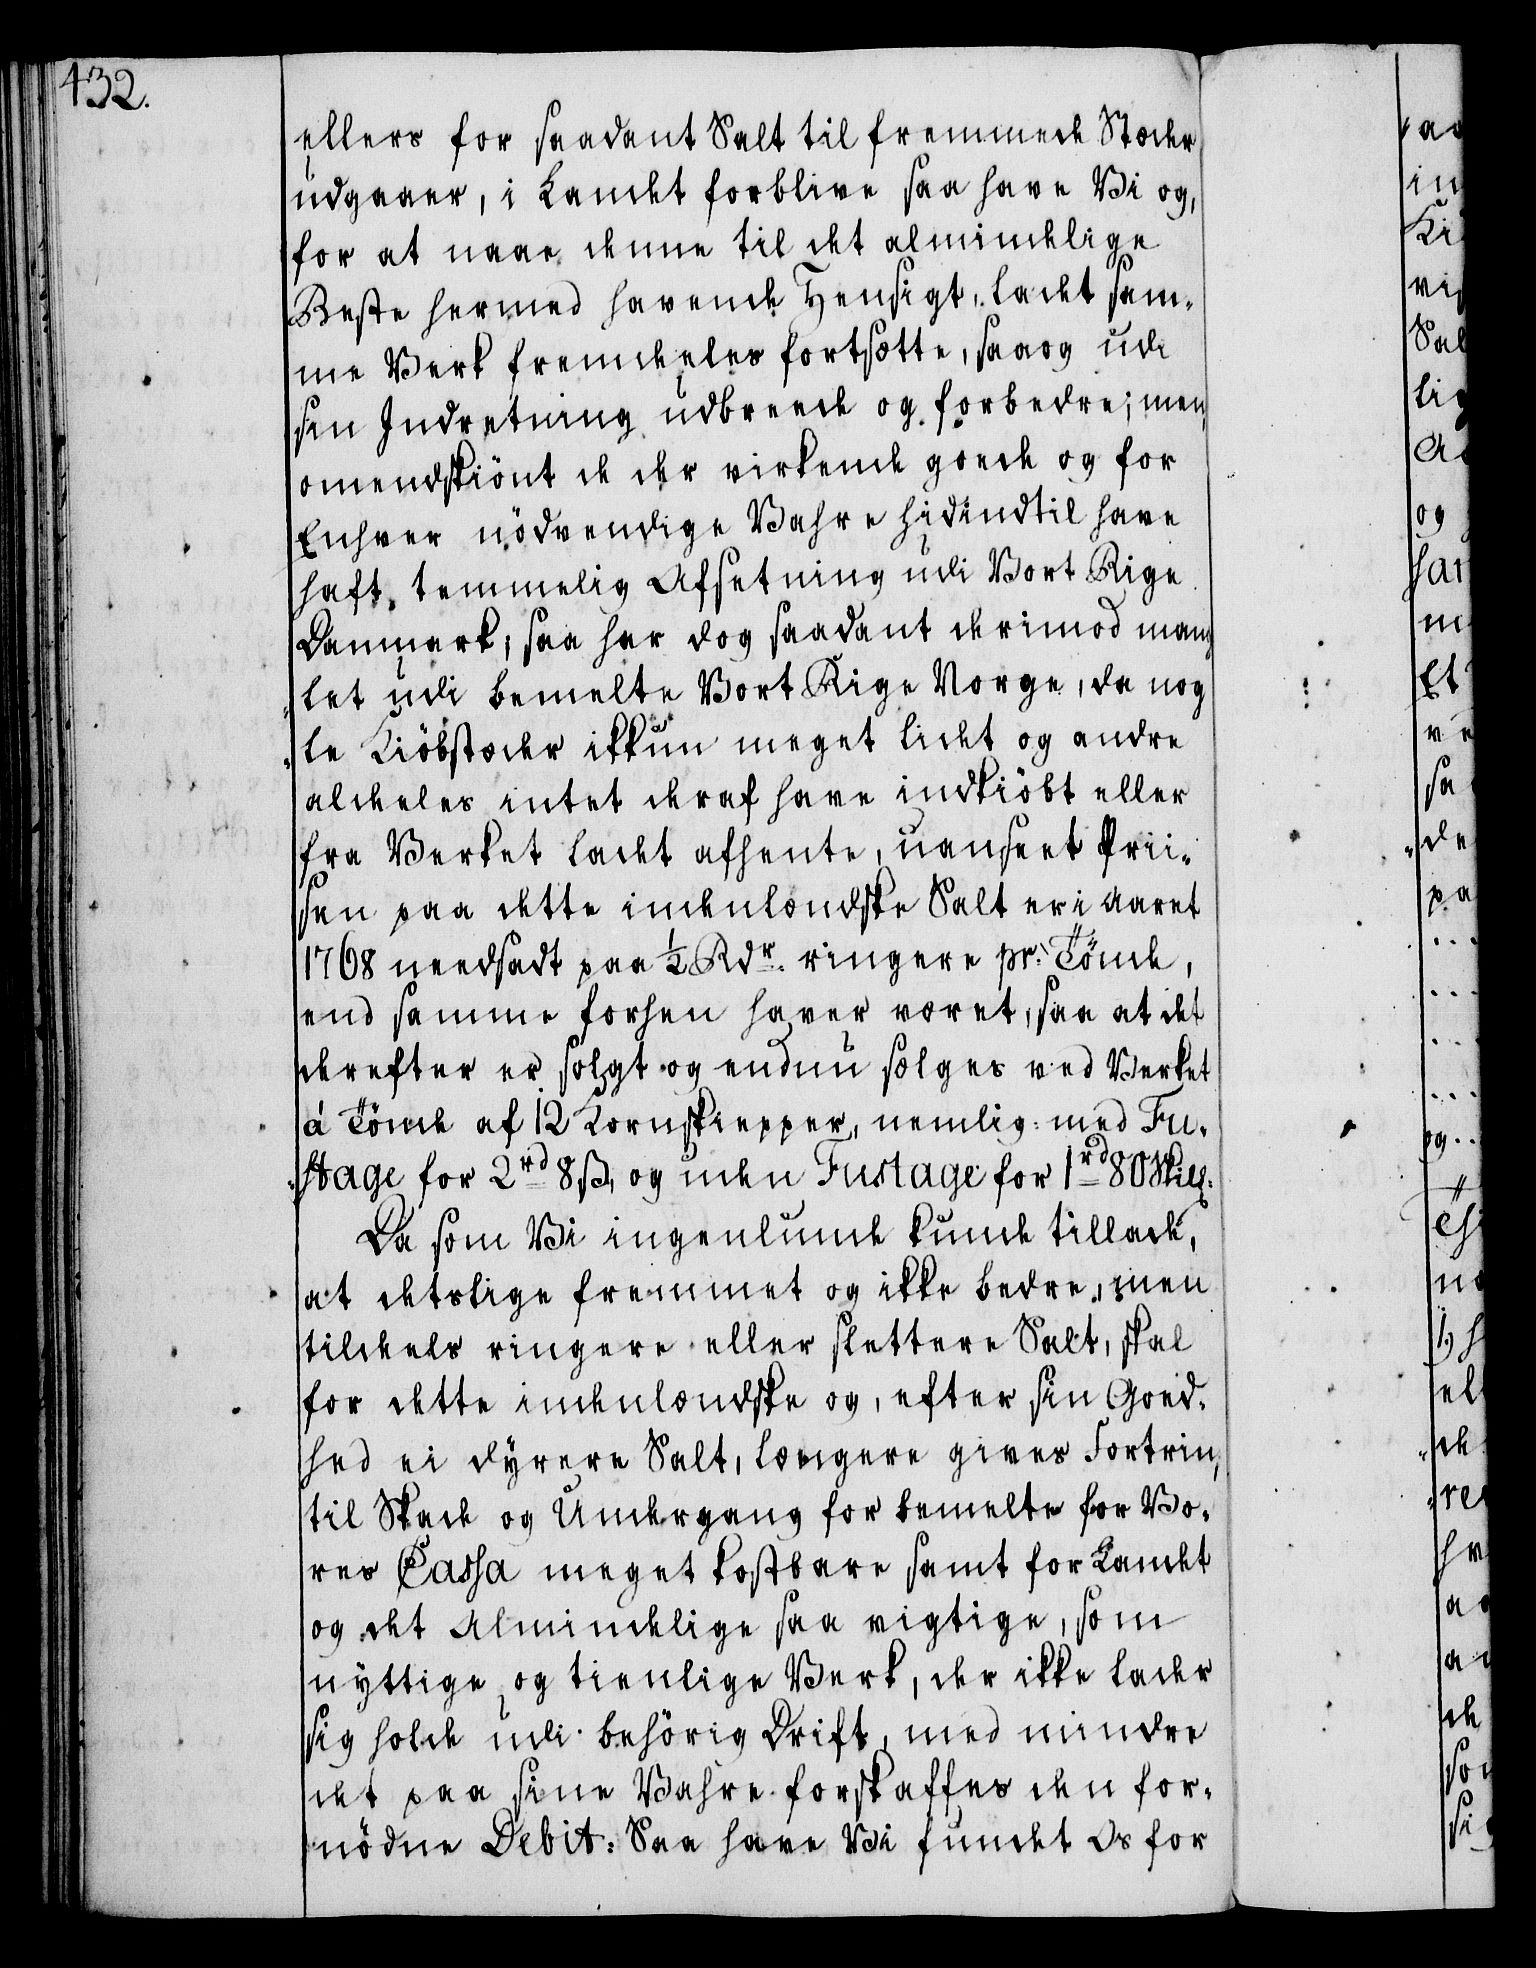 432.
ellers for saadant Salt til fremmede Stæder
udgaaer, i Landet forblive saa have Vi og,
for at naae denne til det almindelige
Beste hermed havende Hensigt, ladet sam-
me Verk fremdeeles fortsætte, saaog udi
sin Indretning udbreede og forbedre; men
omendskiönt de der virkende goede og for
Enhver nödvendige Vahre hidindtil have
haft temmelig Afsetning udi Vort Rige
Danmark; saa har dog saadant derimod mang
let udi bemelte Vort Rige Norge, da nog
le Kiöbstæder ikkun meget lidet og andre
aldeeles intet deraf have indkiöbt eller
fra Verket ladet afhente, uanseet Prii-
sen paa dette indenlændske Salt er i Aaret
1768 needsadt paa ½ Rdr. ringere pr. Tönde,
end samme forhen haver været, saa at det
derefter er solgt og endnu sælges ved Verket
á Tönde af 12 Kornskiepper, nemlig: med Fu-
stage for 2rd 8ß, og uden Fustage for 1rd 80 Skill:
Da som Vi ingenlunde kunde tillade,
at detslige fremmet og ikke bedre, men
tildeels ringere eller slettere Salt, skal
for dette indenlændske og, efter sin Goed-
hed ei dyrere Salt, længere gives Fortrin,
til Skade og Undergang for bemelte for Vo-
res Cassa meget kostbare samt for Landet
og det Almindelige saa vigtige, som
nyttige og tienlige Verk, der ikke lader
sig holde udi behörig Drift, med mindre
det paa sine Vahre forskaffes den for-
nödne Debit: Saa have Vi fundet Os for